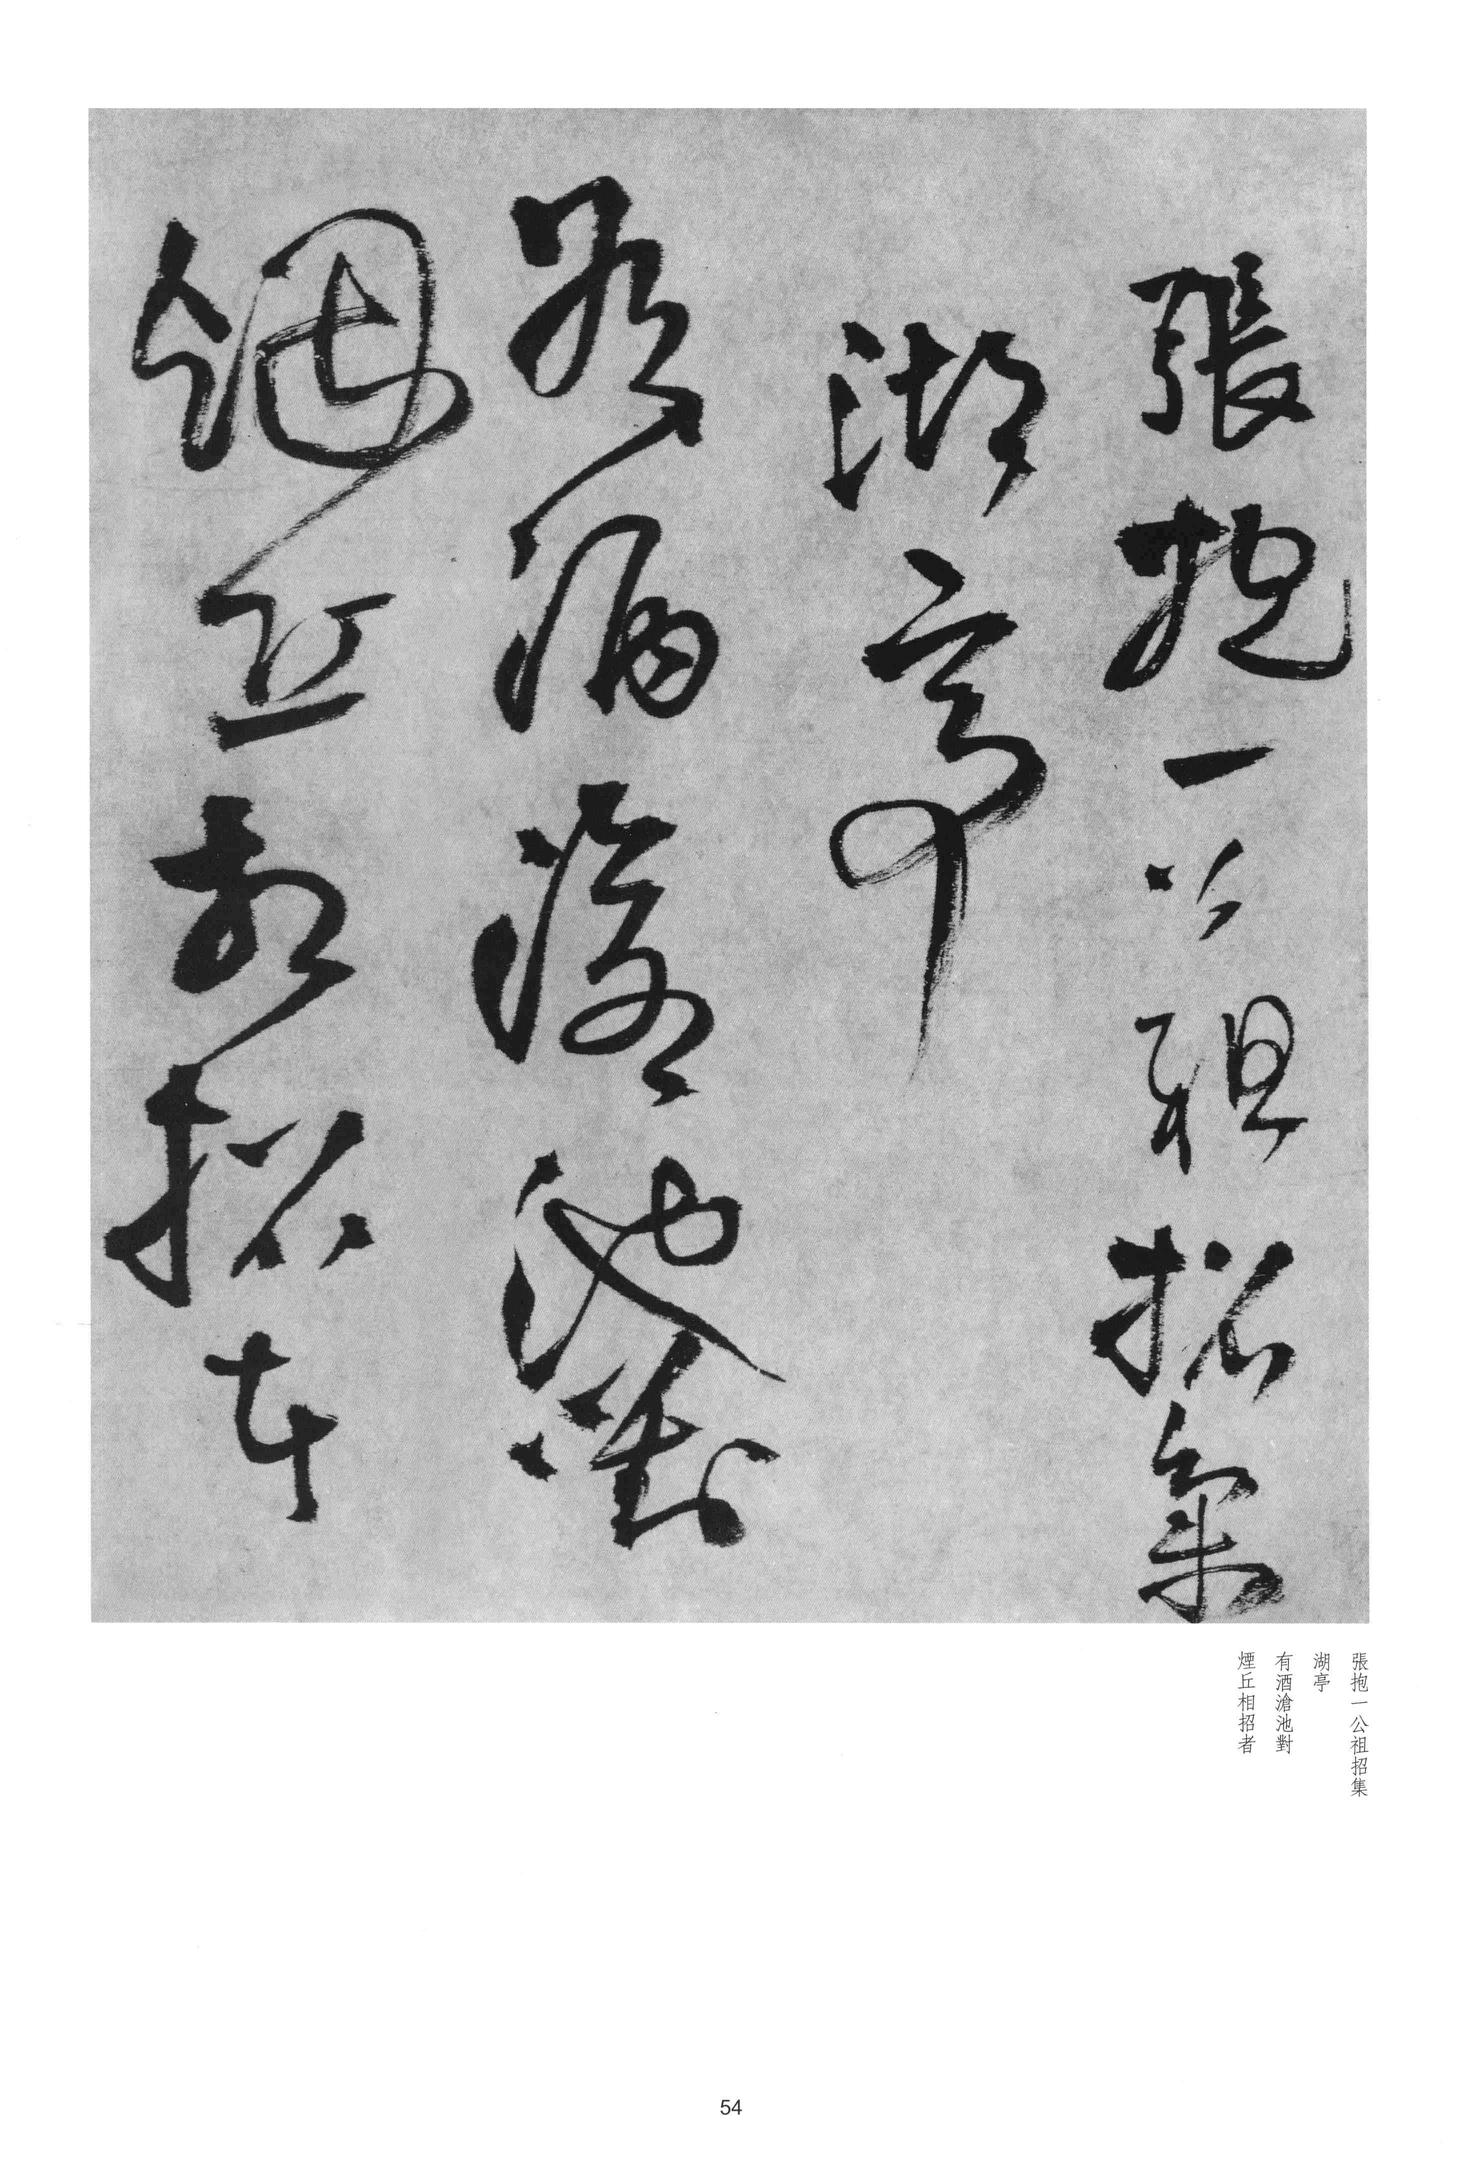 張抱一公祖招集
湖亭
有酒滄池對
烟丘相招者
張抱一公祖招集
湖亭
有酒滄池對
煙丘相招者
54